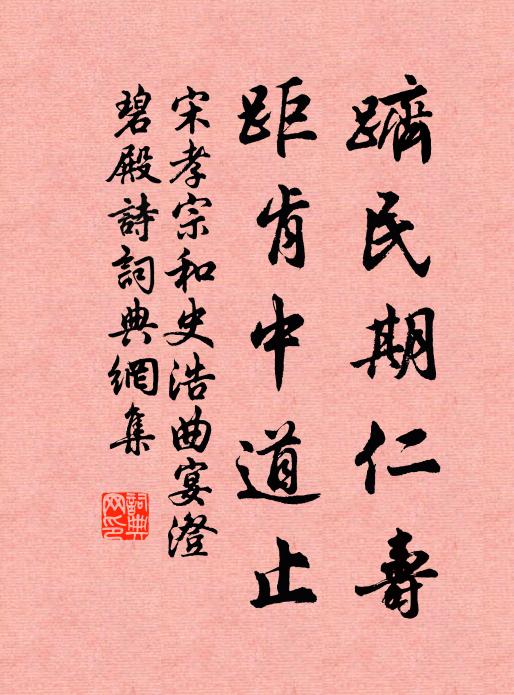 躋民期仁壽
距肯中道止
宋孝宗和史浩曲宴澄
碧殿詩詞典網集
詞典
网印